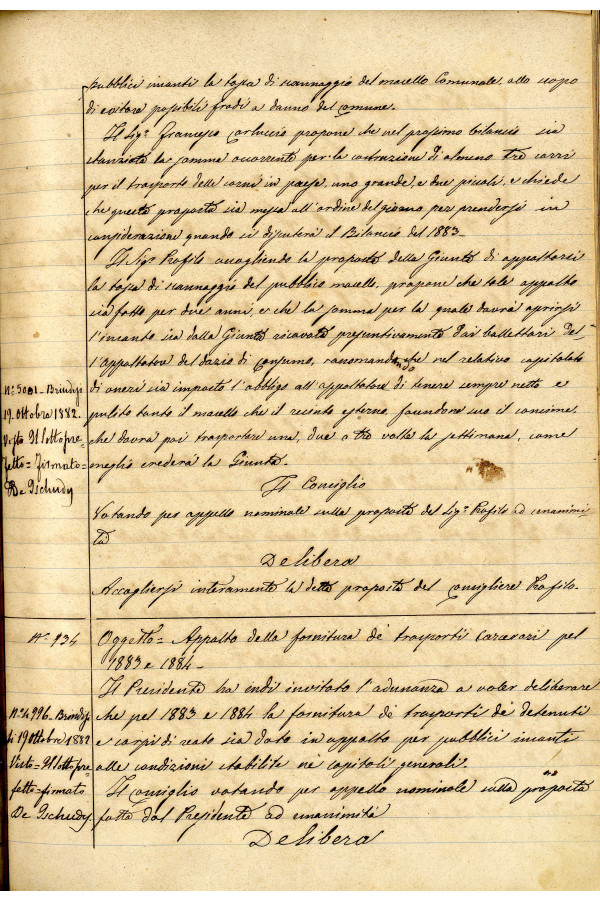 pubblici incanti la tassa di scannaggio del macello Comunale, allo scopo
di evitare possibili frodi a danno del comune.
Il Sigr Francesco Carluccio propone che nel prossimo bilancio sia
stanziata la somma occorrente per la costruzione di almeno tre carri
per il trasporto delle carni in paese, uno grande, e due piccoli, e chiede
che questa proposta sia messa all'ordine del giorno per prendersi in
considerazione quando si discuterà il Bilancio del 1883.
Il Sigr Profilo accogliendo la proposta della Giunta di appaltarsi
la tassa di scannaggio del pubblico macello, propone che tale appalto
sia fatto per due anni, e che la somma per la quale dovrà aprirsi
l'incanto sia dalla Giunta ricavata presuntivamente dai bollettari del-
l'Appaltatore del dazio di Consumo, raccomandando che nel relativo capitolato
di oneri sia imposto l'obbligo all'appaltatore di tenere sempre netto e
pulito tanto il macello che il recinto esterno, facendone suo il concime,
che dovrà poi trasportare una, due o tre volte la settimana, come
meglio crederà la Giunta.
Il Consiglio
Votando per appello nominale sulla proposta del Sigr Profilo ad unanimi-
tà
Delibera
Accogliersi interamente la detta proposta del Consigliere Profilo.
No 5001. Brindisi
19. Ottobre 1882.
Visto Il Sottopre-
fetto = firmato =
De Tschudy
No 134
Oggetto = Appalto della fornitura de' trasporti carcerari pel
1883 e 1884.
Il Presidente ha indi invitato l'adunanza a voler deliberare
che pel 1883 e 1884 la fornitura de' trasporti de' detenuti
e corpi di reato sia data in appalto per pubblici incanti
alle condizioni stabilite ne' capitoli generali.
Il Consiglio votando per appello nominale sulla proposta
fatta dal Presidente ad unanimità
Delibera
No 4996. Brindisi
li 19 Ottobre 1882
Visto = Il Sottopre-
fetto = firmato
De Tschudy.